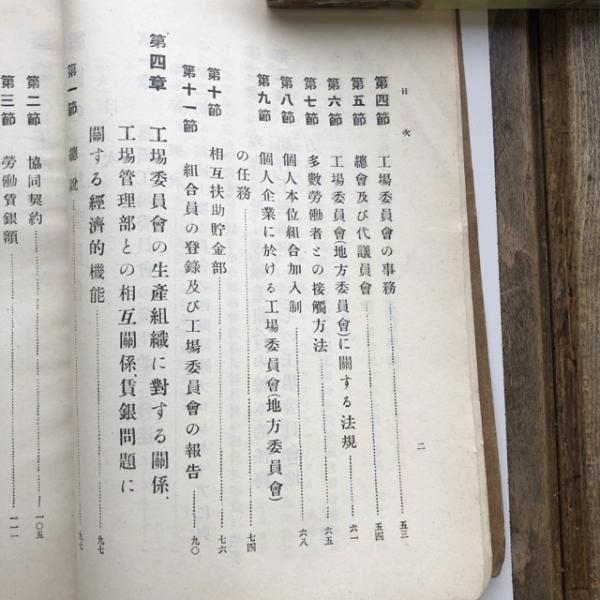 目次
二
第四節 工場委員會の事務 五三
第五節 總會及び代議員會 五四
第六節 工場委員會(地方委員會)に關する法規 六一
第七節 多數勞働者との接觸方法 六五
第八節 個人本位組合加入制 六八
第九節 個人企業に於ける工場委員會(地方委員會)
の任務 七四
第十節 相互扶助貯金部 七六
第十一節 組合員の登錄及び工場委員會の報告 九〇
第四章 工場委員會の生產組織に對する關係、
工場管理部との相互關係、賃銀問題に
關する經濟的機能 九七
第一節 總說 九七
第二節 協同契約 一〇五
第三節 勞働賃銀額 一一一